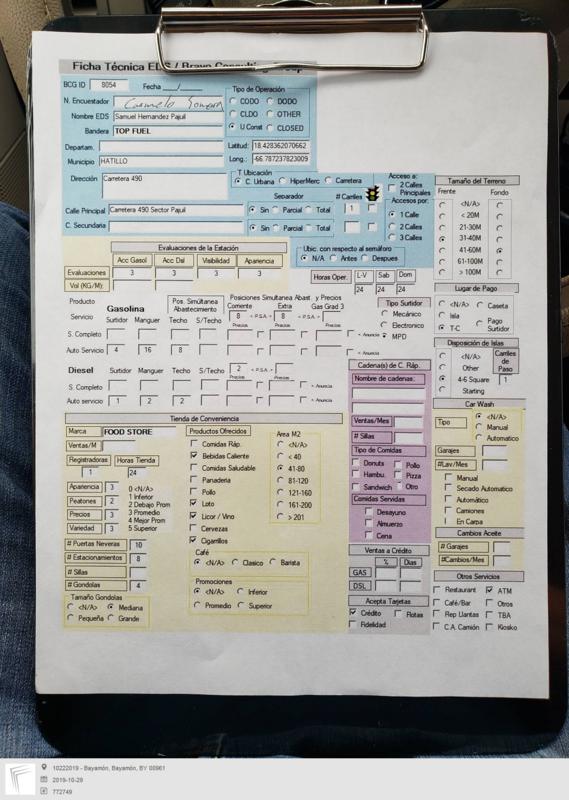 Ficha Técnica EDS / Bravo Consulting Group
BCG ID 8054 Fecha ___/___/
N. Encuestador Carmelo
Nombre EDS Samuel Hernandez Pajuil
Bandera TOP FUEL
Departam.
Municipio HATILLO
Tipo de Operación
CODO DODO
CLDO OTHER
U.Const CLOSED
Latitud: 18.428362070662
Long.: -66.787237823009
Dirección Carretera 490
T.Ubicación
C. Urbana HiperMerc Carretera
Separador # Carriles
Calle Principal Carretera 490 Sector Pajuil Sin Parcial Total 1
C. Secundaria Sin Parcial Total
Acceso a:
2 Calles Principales
Accesos por:
1 Calle
2 Calles
3 Calles
Tamaño del Terreno
Frente Fondo
<N/A>
< 20M
21-30M
31-40M
41-60M
61-100M
> 100M
Evaluaciones de la Estación
Acc Gasol Acc Dsl Visibilidad Apariencia
Evaluaciones 3 3 3 3
Vol (KG/M):
Ubic. con respecto al semáforo
N/A Antes Despues
Horas Oper. L-V Sab Dom
24 24 24
Lugar de Pago
<N/A> Caseta
Isla
T-C Pago Surtidor
Producto Gasolina
Pos. Simúltanea Abastecimiento
Posiciones Simultanea Abast. y Precios
Corriente Extra Gas Grad 3
Servicio Surtidor Manguer Techo S/Techo 8 < P.S.A.> 8 < P.S.A.>
Precios Precios Precios
S. Completo < Anuncia
Auto Servicio 4 16 8 < Anuncia
Tipo Surtidor
Mecánico
Electronico
MPD
Diesel Surtidor Manguer Techo S/Techo 2 < P.S.A.>
Precios Precios
S. Completo < Anuncia
Auto servicio 1 2 2 < Anuncia
Disposición de Islas
<N/A>
Other
4-6 Square
Starting
Carriles de Paso
1
Cadena(s) de C. Ráp.
Nombre de cadenas:
Ventas/Mes
# Sillas
Tipo de Comidas
Donuts Pollo
Hambu. Pizza
Sandwich Otro
Comidas Servidas
Desayuno
Almuerzo
Cena
Car Wash
Tipo <N/A>
Manual
Automatico
Garajes
#Lav/Mes
Manual
Secado Automatico
Automático
Camiones
En Carpa
Cambios Aceite
# Garajes
#Cambios/Mes
Tienda de Conveniencia
Marca FOOD STORE
Ventas/M
Registradoras Horas Tienda
1 24
Apariencia 3
Peatones 2
Precios 3
Variedad 3
0 <N/A>
1 Inferior
2 Debajo Prom
3 Promedio
4 Mejor Prom
5 Superior
# Puertas Neveras 10
# Estacionamientos 8
# Sillas
# Gondolas 4
Tamaño Gondolas
<N/A> Mediana
Pequeña Grande
Productos Ofrecidos
Comidas Ráp.
Bebidas Caliente
Comidas Saludable
Panaderia
Pollo
Loto
Licor / Vino
Cervezas
Cigarrillos
Area M2
<N/A>
< 40
41-80
81-120
121-160
161-200
> 201
Café
<N/A> Clasico Barista
Promociones
<N/A> Inferior
Promedio Superior
Ventas a Crédito
% Dias
GAS
DSL
Acepta Tarjetas
Crédito Flotas
Fidelidad
Otros Servicios
Restaurant ATM
Café/Bar Otros
Rep Llantas TBA
C.A. Camión Kiosko
10222019 - Bayamón, Bayamón, BY 00961
2019-10-29
772749